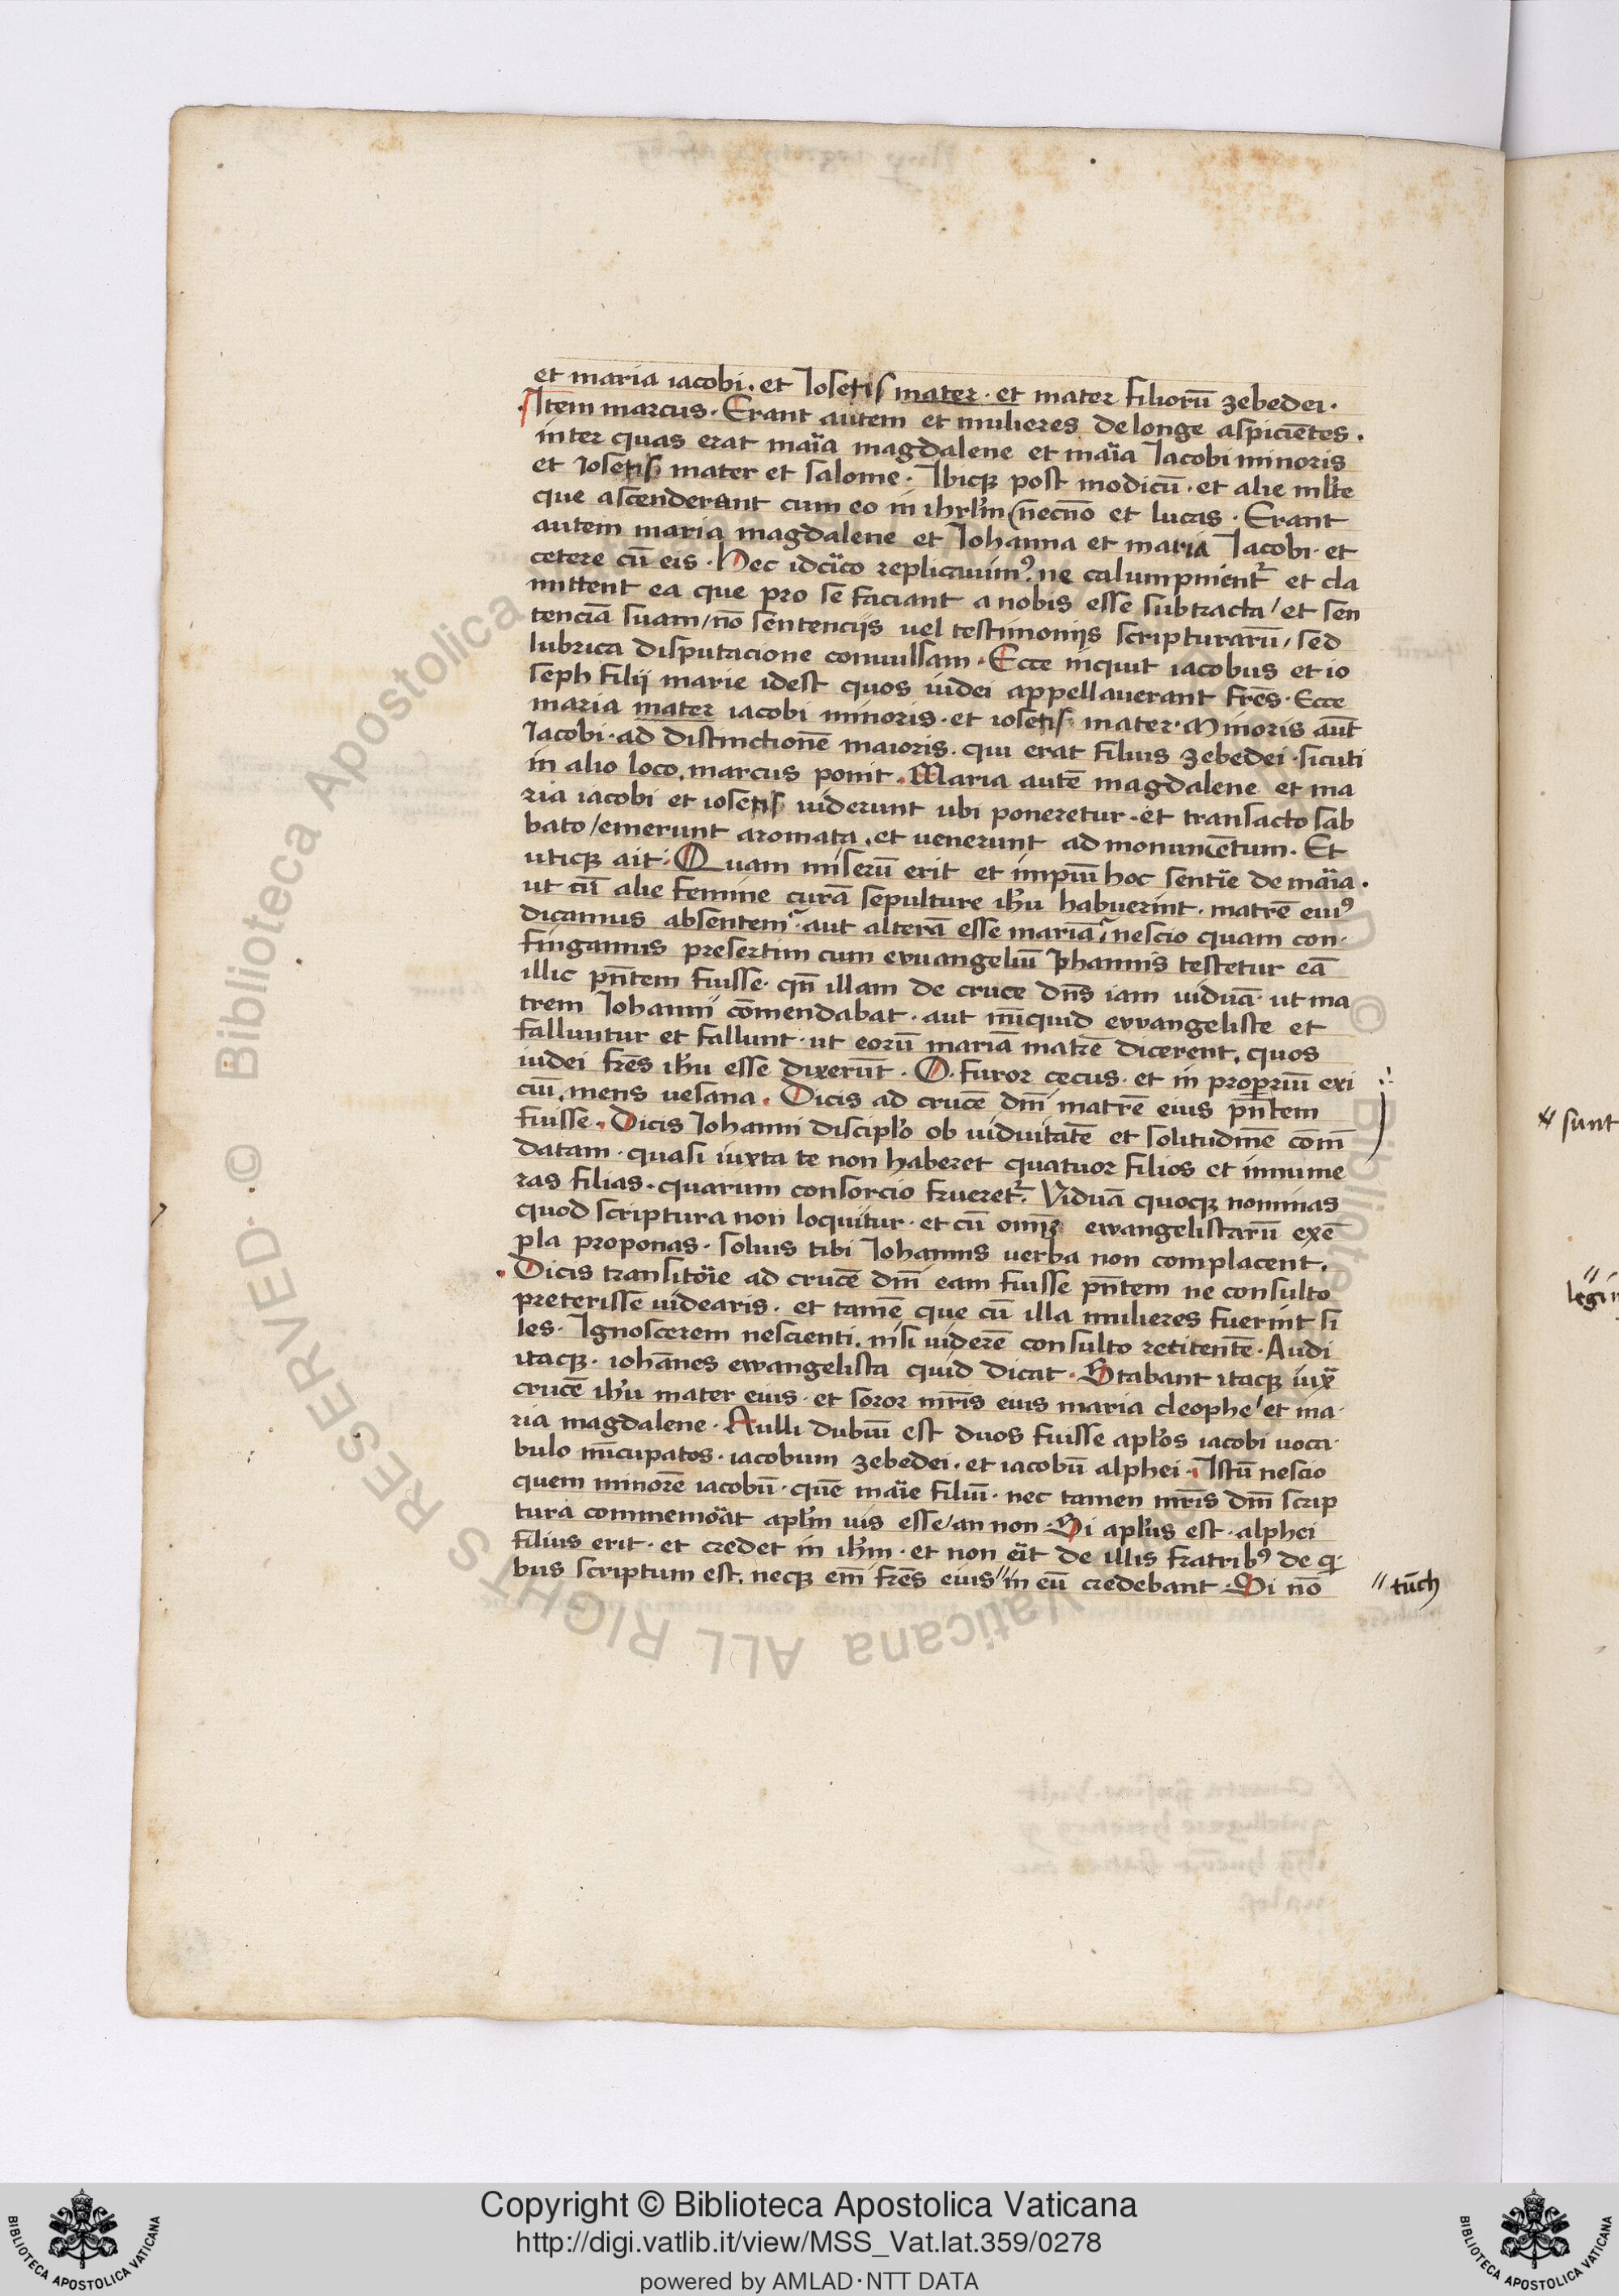 et maria iacobi. et Iosetis mater. et mater filiorū zebedei.
Item marcus. Erant autem et mulieres de longe aspiciētes.
inter quas erat maïa magdalene et maïa Iacobi minoris
et iosetis mater et salome. Ibicꝫ post modicū. et alie ml̅te
que ascenderant cum eo in ihrl̅m (necnō et lucas. Erant
autem maria magdalene et Iohanna et maria Iacobi. et
cetere cū eis. Hec idcïco replicauimꝰ. ne calumpnient᷑ et cla
mittent ea que pro se faciant a nobis esse subtracta / et sen
tenciā suam / nō sentencijs uel testimonijs scripturarū / sed
lubrica disputacione conuulsam. Ecce inquit iacobus et io
seph filij marie idest quos iudei appellauerant frēs. Ecce
maria mater iacobi minoris. et iosetis mater. Minoris aūt
Iacobi. ad distinctionē maioris. qui erat filius zebedei. sicuti
in alio loco. marcus ponit. Maria autē magdalene et ma
ria iacobi et iosetis uiderunt ubi poneretur. et transacto sab
bato / emerunt aromata. et uenerunt ad monumētum. Et
uticꝫ ait. Quam miserū erit et impiū hoc sentïe de maïa.
ut cū alie femine curā sepulture ih̅u habuerint. matrē euiꝰ
dicamus absentem. aut alterā esse mariā. nescio quam con
fingamus presertim cum evuangeliū Iohannis testetur eā
illic pn̅tem fuisse. qn̅ illam de cruce dn̅s iam uiduā ut ma
trem Iohanni cōmendabat. aut nūcquid evvangeliste et
falluntur et fallunt. ut eorū mariā matrē dicerent. quos
iudei frēs ih̅u esse dixerūt. O. furor cecus. et in propriū exi
ciū. mens uesana. Dicis ad crucē dn̅i matrē eius pn̅tem
fuisse. Dicis Iohanni discipl̅o ob uiduitatē et solitudinē cōm̅
datam. quasi iuxta te non haberet quatuor filios et innume
ras filias. quarum consorcio frueret᷑. Viduā quocꝫ nominas
quod scriptura non loquitur. et cū omniꝫ ewangelistarū exē
pla proponas. solius tibi Iohannis uerba non complacent.
Dicis transitöie ad crucē dn̅i eam fuisse pn̅tem ne consulto
preterissē uidearis. et tamē que cū illa mulieres fuerint si
les. Ignoscerem nescienti. nisi uiderē consulto retitentē. Audi
itacꝫ. iohānes ewangelista quid dicat. Stabant itacꝫ iux̅
crucē ih̅u mater eius. et soror mr̅is eius maria cleophe / et ma
ria magdalene. Nulli dubiū est duos fuisse apl̅os iacobi uoca
bulo nūcupatos. iacobum zebedei. et iacobū alphei. Istū nescio
quem minorē iacobū. quē maïe filiū. nec tamen mr̅is dn̅i scrip
tura commemöat apl̅m uis esse / an non. Si apl̅us est. alphei
filius erit. et credet in ih̅m. et non eït de illis fratribꝰ de qi
bus scriptum est. necꝫ em̅ frēs eius // in eū credebant. Si nō
// tūch
sunt
Copyright © Biblioteca Apostolica Vaticana
http://digi.vatlib.it/view/MSS_Vat.lat.359/0278
powered by AMLAD·NTT DATA
BIBLIOTECA APOSTOLICA VATICANA
BIBLIOTECA APOSTOLICA VATICANA
© Biblioteca Apostolica Vaticana ALL RIGHTS RESERVED